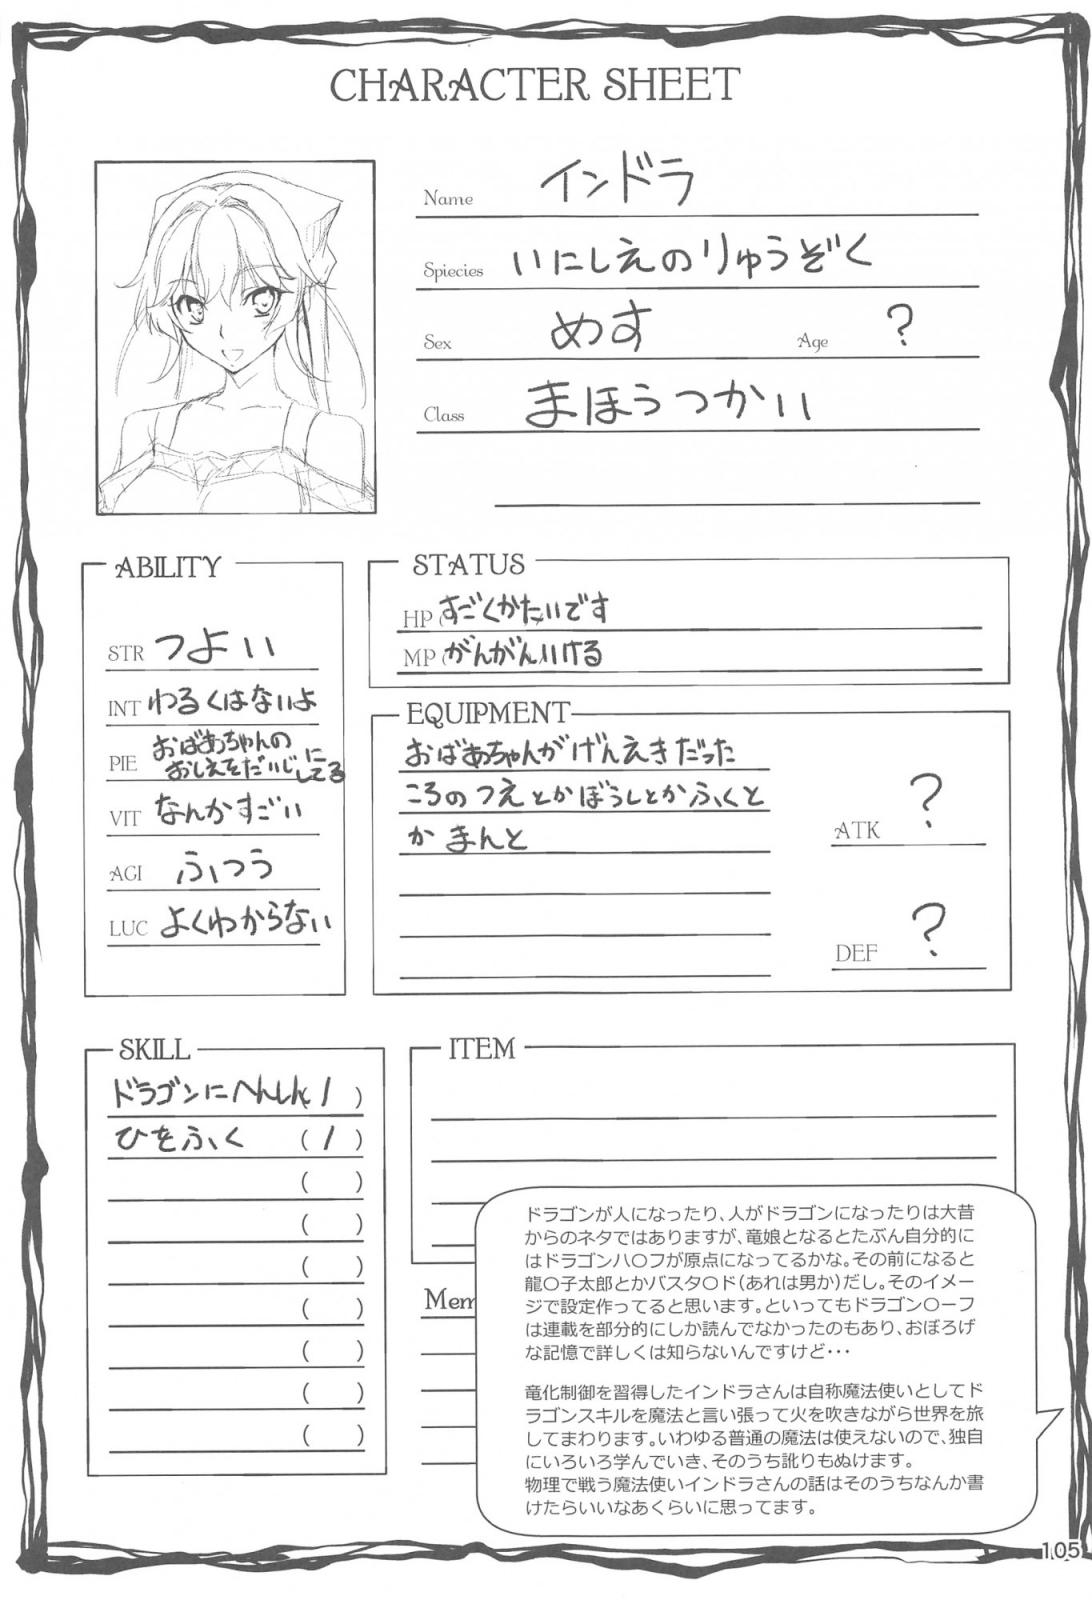 CHARACTER SHEET
Name インドラ
Spiecies いにしえのりゅうぞく
Sex めす Age ?
Class まほうつかい
ABILITY
STR つよい
INT わるくはないよ
PIE おばあちゃんの
おしえをだいじに
してる
VIT なんかすごい
AGI ふつう
LUC よくわからない
STATUS
HP( すごくかたいです
MP( がんがんいける
EQUIPMENT
おばあちゃんがげんえきだった
ころのつえとかぼうしとかふくと
かまんと
ATK ?
DEF ?
SKILL
ドラゴンにへんしん( 1 )
ひをふく ( 1 )
( )
( )
( )
( )
( )
( )
( )
ITEM
Mem
ドラゴンが人になったり、人がドラゴンになったりは大昔
からのネタではありますが、竜娘となるとたぶん自分的に
はドラゴンハ〇フが原点になってるかな。その前になると
龍〇子太郎とかバスタ〇ド(あれは男か)だし。そのイメー
ジで設定作ってると思います。といってもドラゴン〇ーフ
は連載を部分的にしか読んでなかったのもあり、おぼろげ
な記憶で詳しくは知らないんですけど・・・
竜化制御を習得したインドラさんは自称魔法使いとしてド
ラゴンスキルを魔法と言い張って火を吹きながら世界を旅
してまわります。いわゆる普通の魔法は使えないので、独自
にいろいろ学んでいき、そのうち訛りもぬけます。
物理で戦う魔法使いインドラさんの話はそのうちなんか書
けたらいいなあくらいに思ってます。
105